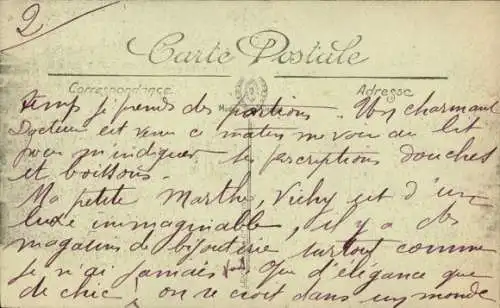 2
Carte Postale
Correspondance
Adresse
temps je prends des portions. Un charmant
Docteur est venu ce matin me voir au lit
pour m'indiquer les perscriptions douches
et boissons.
Ma petite Marthe, Vichy est d'un
luxe immaginable, il y a des
magasins de bijouterie surtout comme
je n'ai jamais vu. Que d'élégance que
de chic! on se croit dans un monde